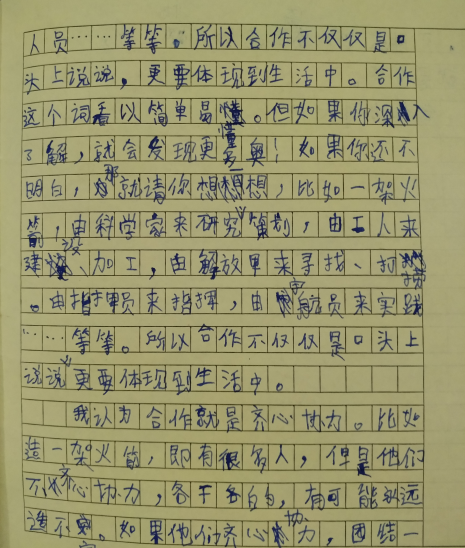 人员……等等。所以合作不仅仅是口
头上说说，更要体现到生活中。合作
这个词看以简单易懂。但如果你深入
了解，就会发现更多奥！如果你还不
明白，那就请你想想想，比如一架火
箭，由科学家来研究、策划，由工人来
建设、加工，由解放军来寻找、打捞
。由指挥员来指挥，由宇航员来实践
……等等。所以合作不仅仅是口头上
说说，更要体现到生活中。
我认为合作就是齐心协力。比如
造一架火箭，即有很多人，但是他们
不齐心协力，各干各自的，有可能永远
造不完。如果他们齐心协力，团结一